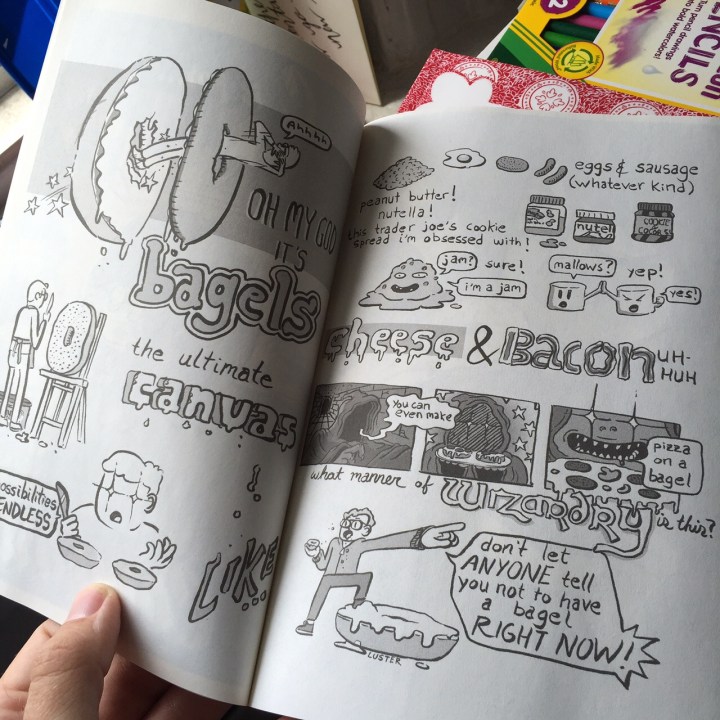 Ahhhh
OH MY GOD
IT'S
bagels
the ultimate
canvas
possibilities
ENDLESS
LIKE...
eggs & sausage
(whatever kind)
peanut butter!
nutella!
this trader joe's cookie
spread i'm obsessed with!
nutel
COOKIE
jam? sure!
i'm a jam
mallows? yep!
yes!
cheese & Bacon UH-
HUH
You can
even make
pizza
on a
bagel
what manner of WIZARDRY is this?
don't let
ANYONE tell
you not to have
a bagel
RIGHT NOW!
LUSTER
NCILS
Turn pencil drawings
into bold watercolors!